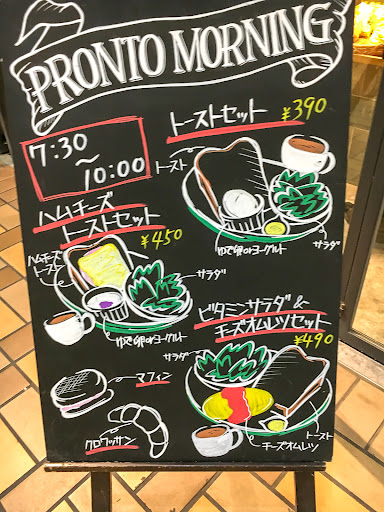 PRONTO MORNING
7:30
～
10:00
トーストセット
¥390
トースト
ゆで卵orヨーグルト
サラダ
ハムチーズ
トーストセット
¥450
ハムチーズ
トースト
サラダ
ゆで卵orヨーグルト
ビタミンサラダ&
チーズオムレツセット
¥490
サラダ
トースト
チーズオムレツ
マフィン
クロワッサン